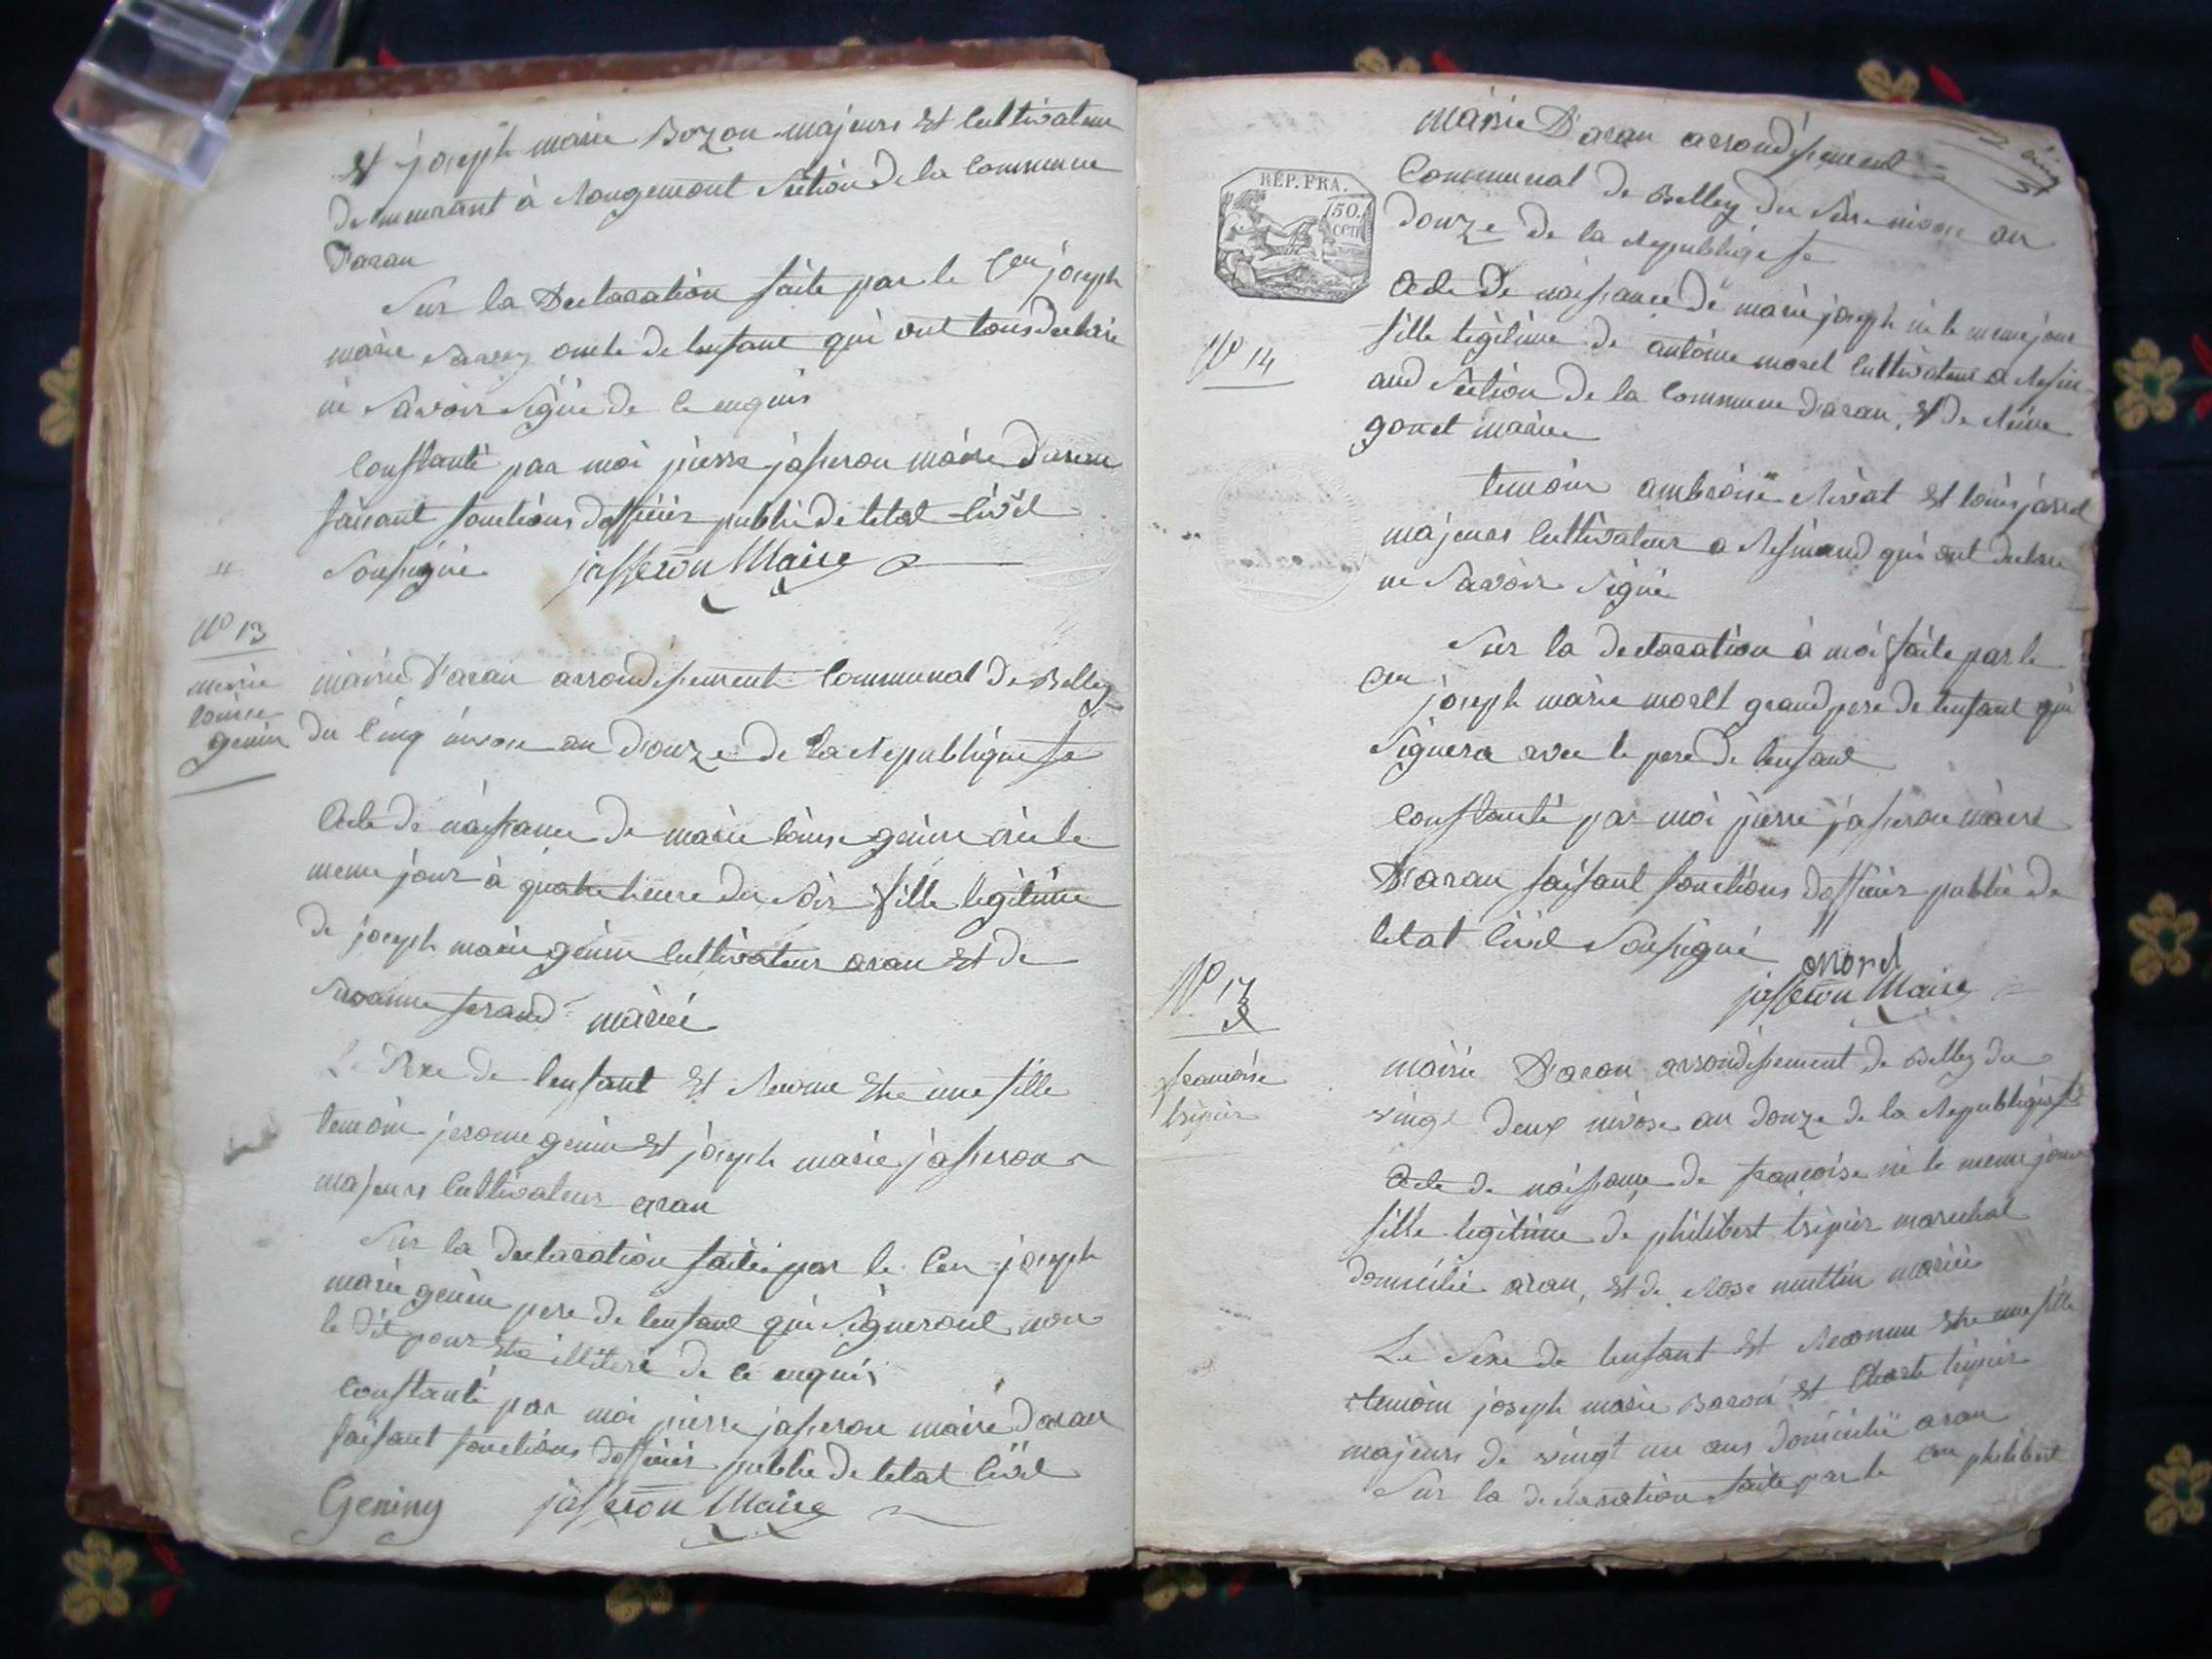 Et joseph marie Bozon majeurs Et Cultivateur
demeurant à Rougemont Section de la Commune
D'aran
Sur la Declaration faite par le Cen joseph
marie Savey oncle de lenfant qui ont tous declaré
ne Savoir Signé de ce enquis
Constanté par moi pierre jasseron maire Daran
faisant fonctions dofficier public de letat Civil
Sousigné jasseron Maire
No 13
marie
louise
genin
mairie D'aran arrondissement Communal De Belley
du Cinq nivose an Douze de la Republique
Acte de naissance de marie louise genin née le
meme jour à quatre heure du Soir fille legitime
de joseph marie genin Cultivateur aran Et de
Suzanne ferand mariée
Le Sexe de lenfant Et Reconnu Etre une fille
temoin jerome genin Et joseph marie jasseron
majeurs Cultivateur aran
Sur la declaration faite par le Cen joseph
marie genin pere de lenfant qui Signeront non
le dit pour Etre illiteré de ce enquis
Constanté par moi pierre jasseron maire Daran
faisant fonctions dofficier public de letat Civil
Geniny jasseron Maire
mairie D'aran arrondissement
Communal de Belley du nivose an
REP. FRA.
50.
cen
Douze de la Republique
Acte De naissance De marie joseph né le meme jour
No 14
fille legitime de antoine morel Cultivateur a Ressin
and Section de la Commune D'aran, Et De Reine
gonet mariée
temoin ambroise Rivat Et louis jarrel
majeurs Cultivateur a Resinand qui ont declaré
ne Savoir Signé
Sur la declaration à moi faite par le
Cen
joseph marie morelt grand pere de lenfant qui
Signera avec le pere De lenfant
Constanté par moi pierre jasseron maire
D'aran faisant fonctions dofficier public de
letat Civil Sousigné
Morel
jasseron Maire
No 17
francoise
tripier
mairie D'aran arrondissement de Belley du
vingt deux nivose an douze de la Republique
Acte de naissance de francoise né le meme jour
fille legitime de philibert tripier marechal
domicilié aran, Et de Rose muttin mariée
Le Sexe de lenfant Et Reconnu Etre une fille
temoin joseph marie Baron Et Charle tripier
majeurs de vingt un ans domicilié aran
Sur la declaration faite par le Cen philibert